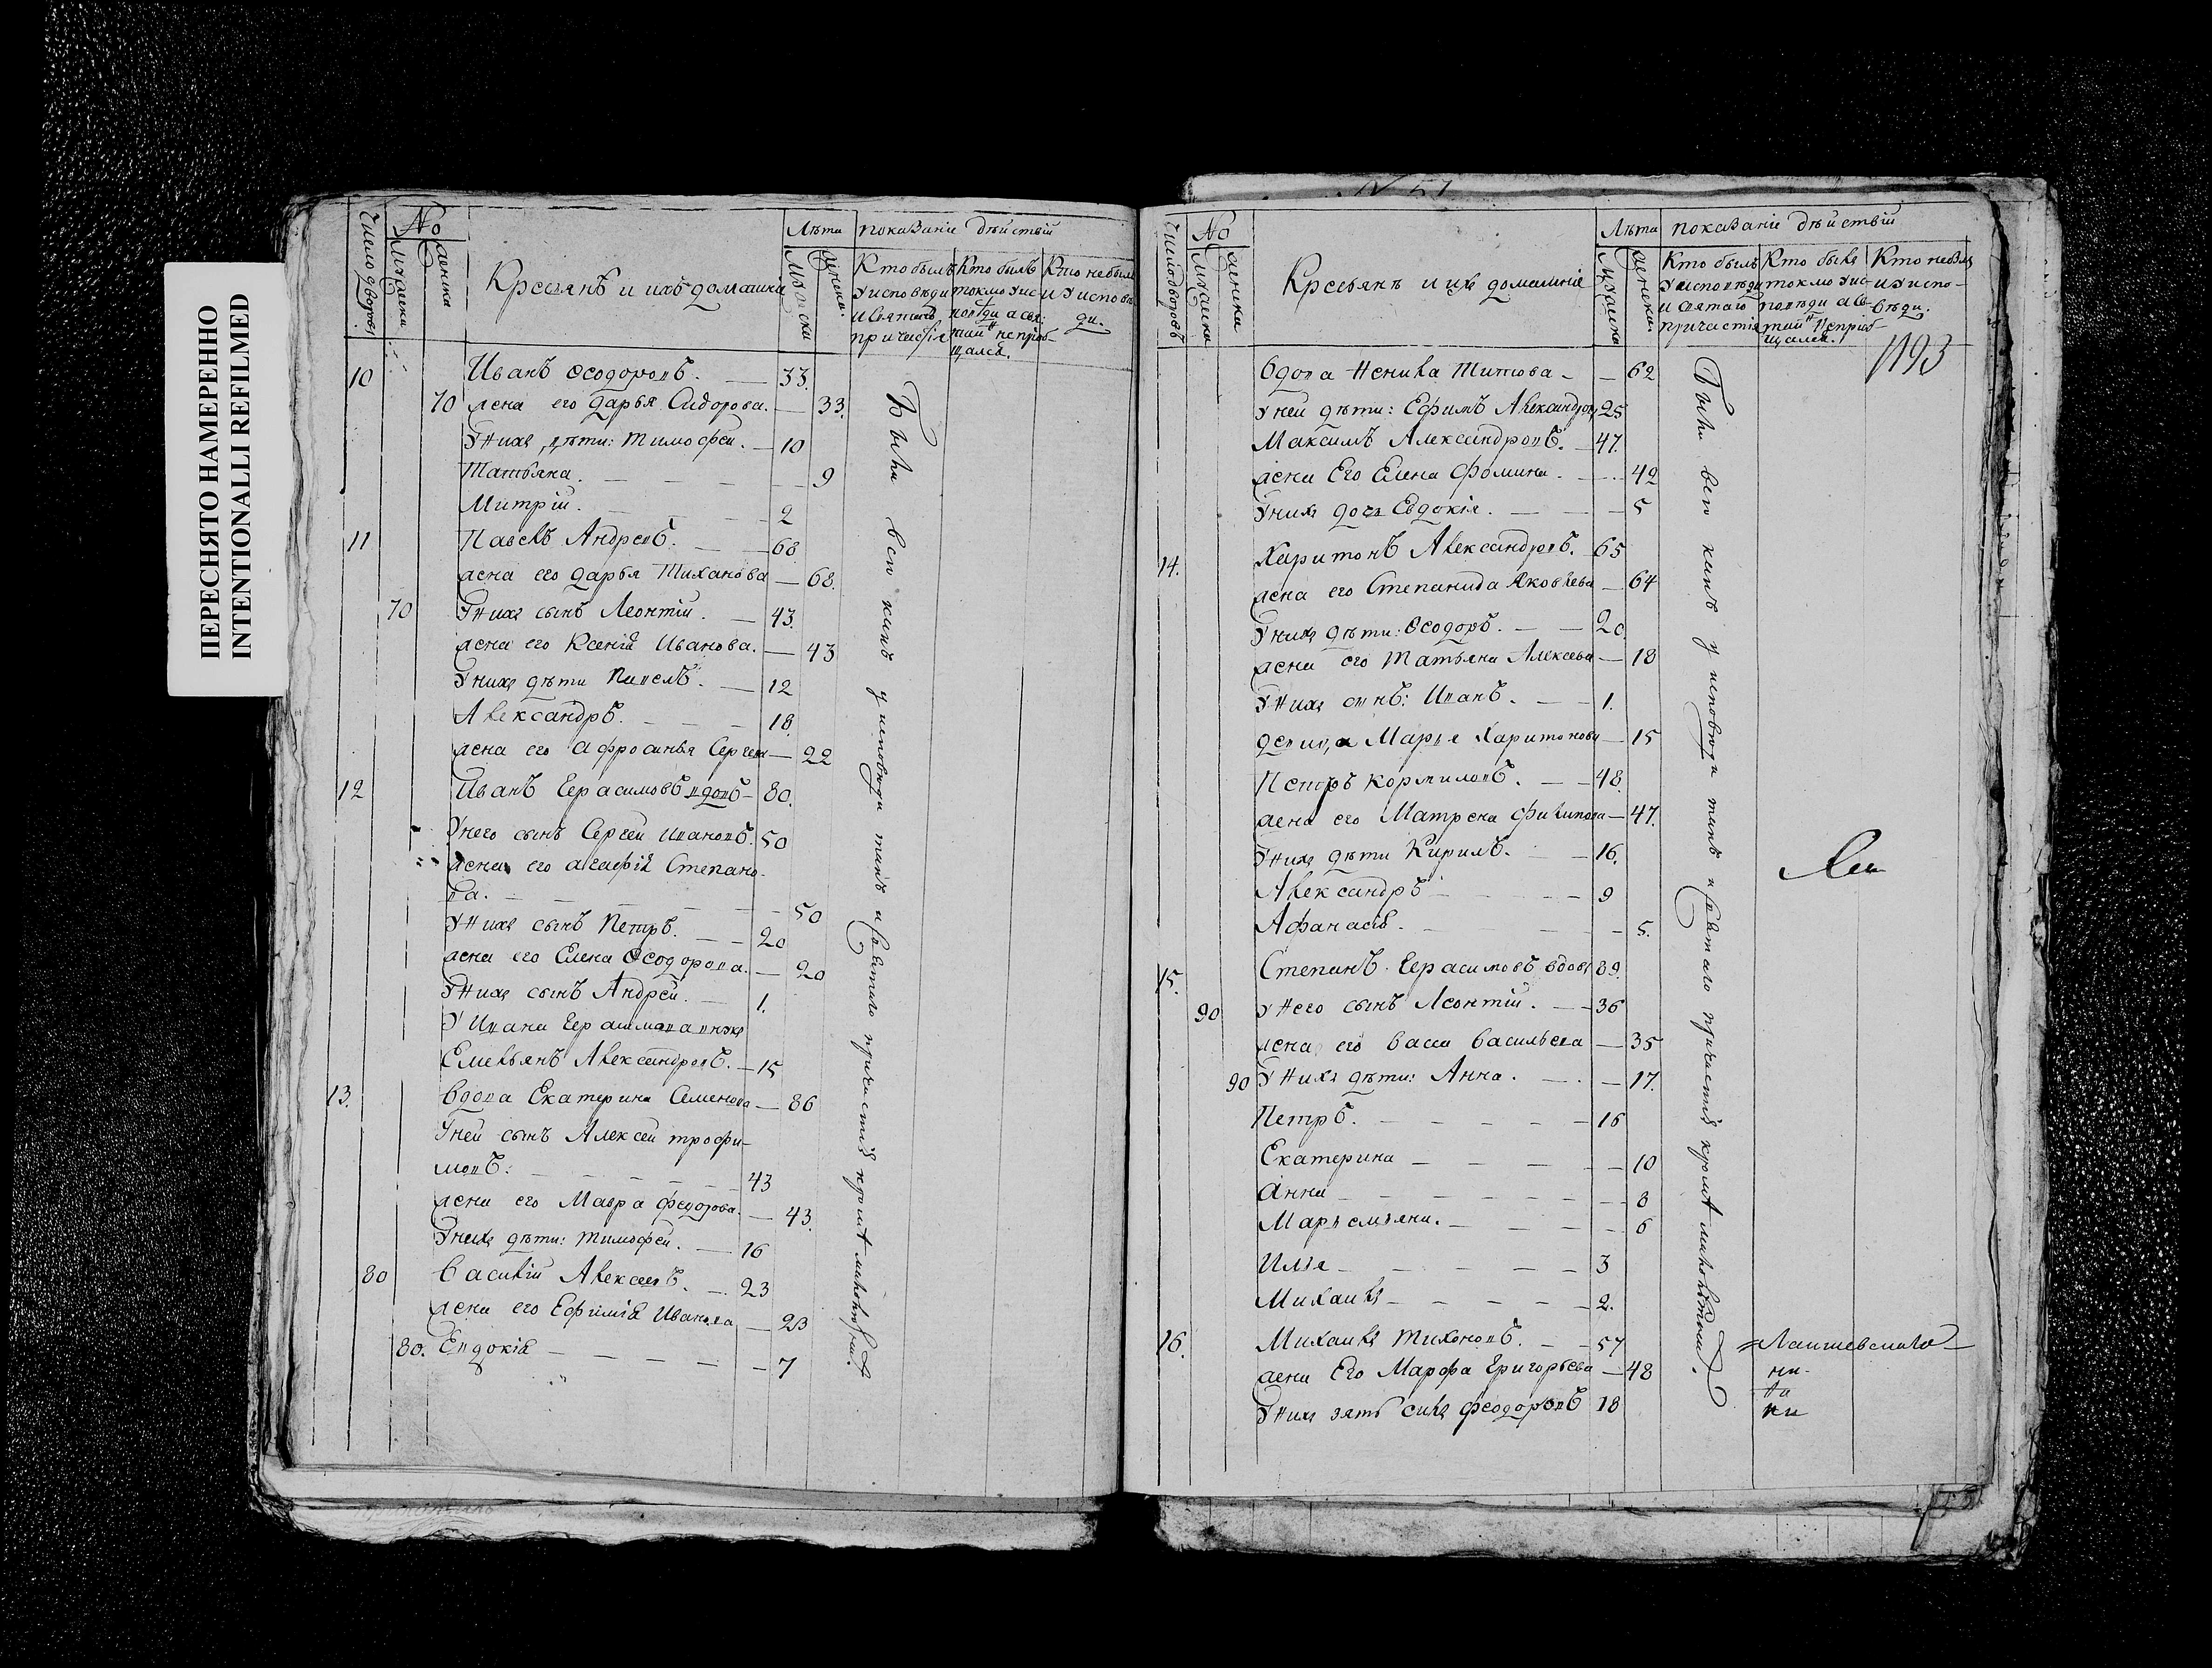 ПЕРЕСНЯТО НАМЕРЕННО
INTENTIONALLI REFILMED
Число дворовъ
No
Мужеска
женска
Крестьянъ и ихъ домашнихъ
Лѣта
Мужеска
женска
показанiе дѣйствiй
Кто былъ у исповѣди и святаго причастiя
Кто былъ токмо у исповѣди а святыхъ таинъ не прiобщался.
Кто не былъ и у исповѣди.
10 Иванъ Ѳеодоровъ. — 33.
70 жена его Дарья Сидорова. — 33.
У нихъ дѣти: Тимофей. — 10
Татьяна. — 9
Митрiй. — 2
11 Павелъ Андреевъ. — 68
жена его Дарья Тиханова — 68.
70 У нихъ сынъ Леонтiй. — 43.
жена его Ксенiя Иванова. — 43
У нихъ дѣти Павелъ. — 12
Александръ. — 18.
жена его Афросинья Сергеева — 22
12 Иванъ Герасимовъ вдовъ — 80.
У него сынъ Сергей Ивановъ. 50
жена его Агафiя Степано-
ва. — 50
У нихъ сынъ Петръ. — 20
жена его Елена Ѳеодорова. — 20
У нихъ сынъ Андрей. — 1.
У Ивана Герасимова внукъ
Емельянъ Александровъ. — 15
13. Вдова Екатерина Семенова — 86
У ней сынъ Алексей Трофи-
мовъ. — 43
жена его Мавра Федорова. — 43.
У нихъ дѣти: Тимофей. — 16
80 Василiй Алексеевъ. — 23
жена его Ефимiя Иванова — 23
80. Евдокiя — 7
Были вси какъ у исповѣди такъ и святаго причастiя кромѣ малолѣтныхъ.
Число дворовъ
No
Мужеска
женска
Крестьянъ и ихъ домашнiе
Лѣта
Мужска
женска
показанiе дѣйствiй
Кто былъ у исповѣди и святаго причастiя
Кто былъ токмо у исповѣди а святыхъ таинъ не прiобщался.
Кто не былъ и у исповѣди.
1193
Вдова Ненила Титова — 62
У ней дѣти: Ефимъ Александровъ 25
Максимъ Александровъ. — 47.
жена Его Елена Фомина. — 42
У нихъ дочь Евдокiя. — 5
14. Харитонъ Александровъ. 65
жена его Степанида Яковлева — 64
У нихъ дѣти: Ѳеодоръ. — 20.
жена его Татьяна Алексева — 18
У нихъ сынъ: Иванъ. — 1.
девица Марья Харитонова — 15
Петръ Кормиловъ. — 48.
жена его Матрена Филипова — 47.
У нихъ дѣти Кирилъ. — 16.
Александръ — 9
Афанасiя. — 5.
15. Степанъ Герасимовъ вдовъ 89.
90 У него сынъ Леонтiй. — 36
жена его Васса Васильева — 35
90 У нихъ дѣти: Анна. — 17.
Петръ. — 16
Екатерина — 10
Анна — 8
Маръемъяна. — 6
Илья — 3
Михаилъ — 2.
16. Михаилъ Тихоновъ. — 57
жена Его Марфа Григорьева — 48
У нихъ зять Сила Феодоровъ 18
Были вси какъ у исповѣди такъ и святаго причастiя кромѣ малолѣтныхъ.